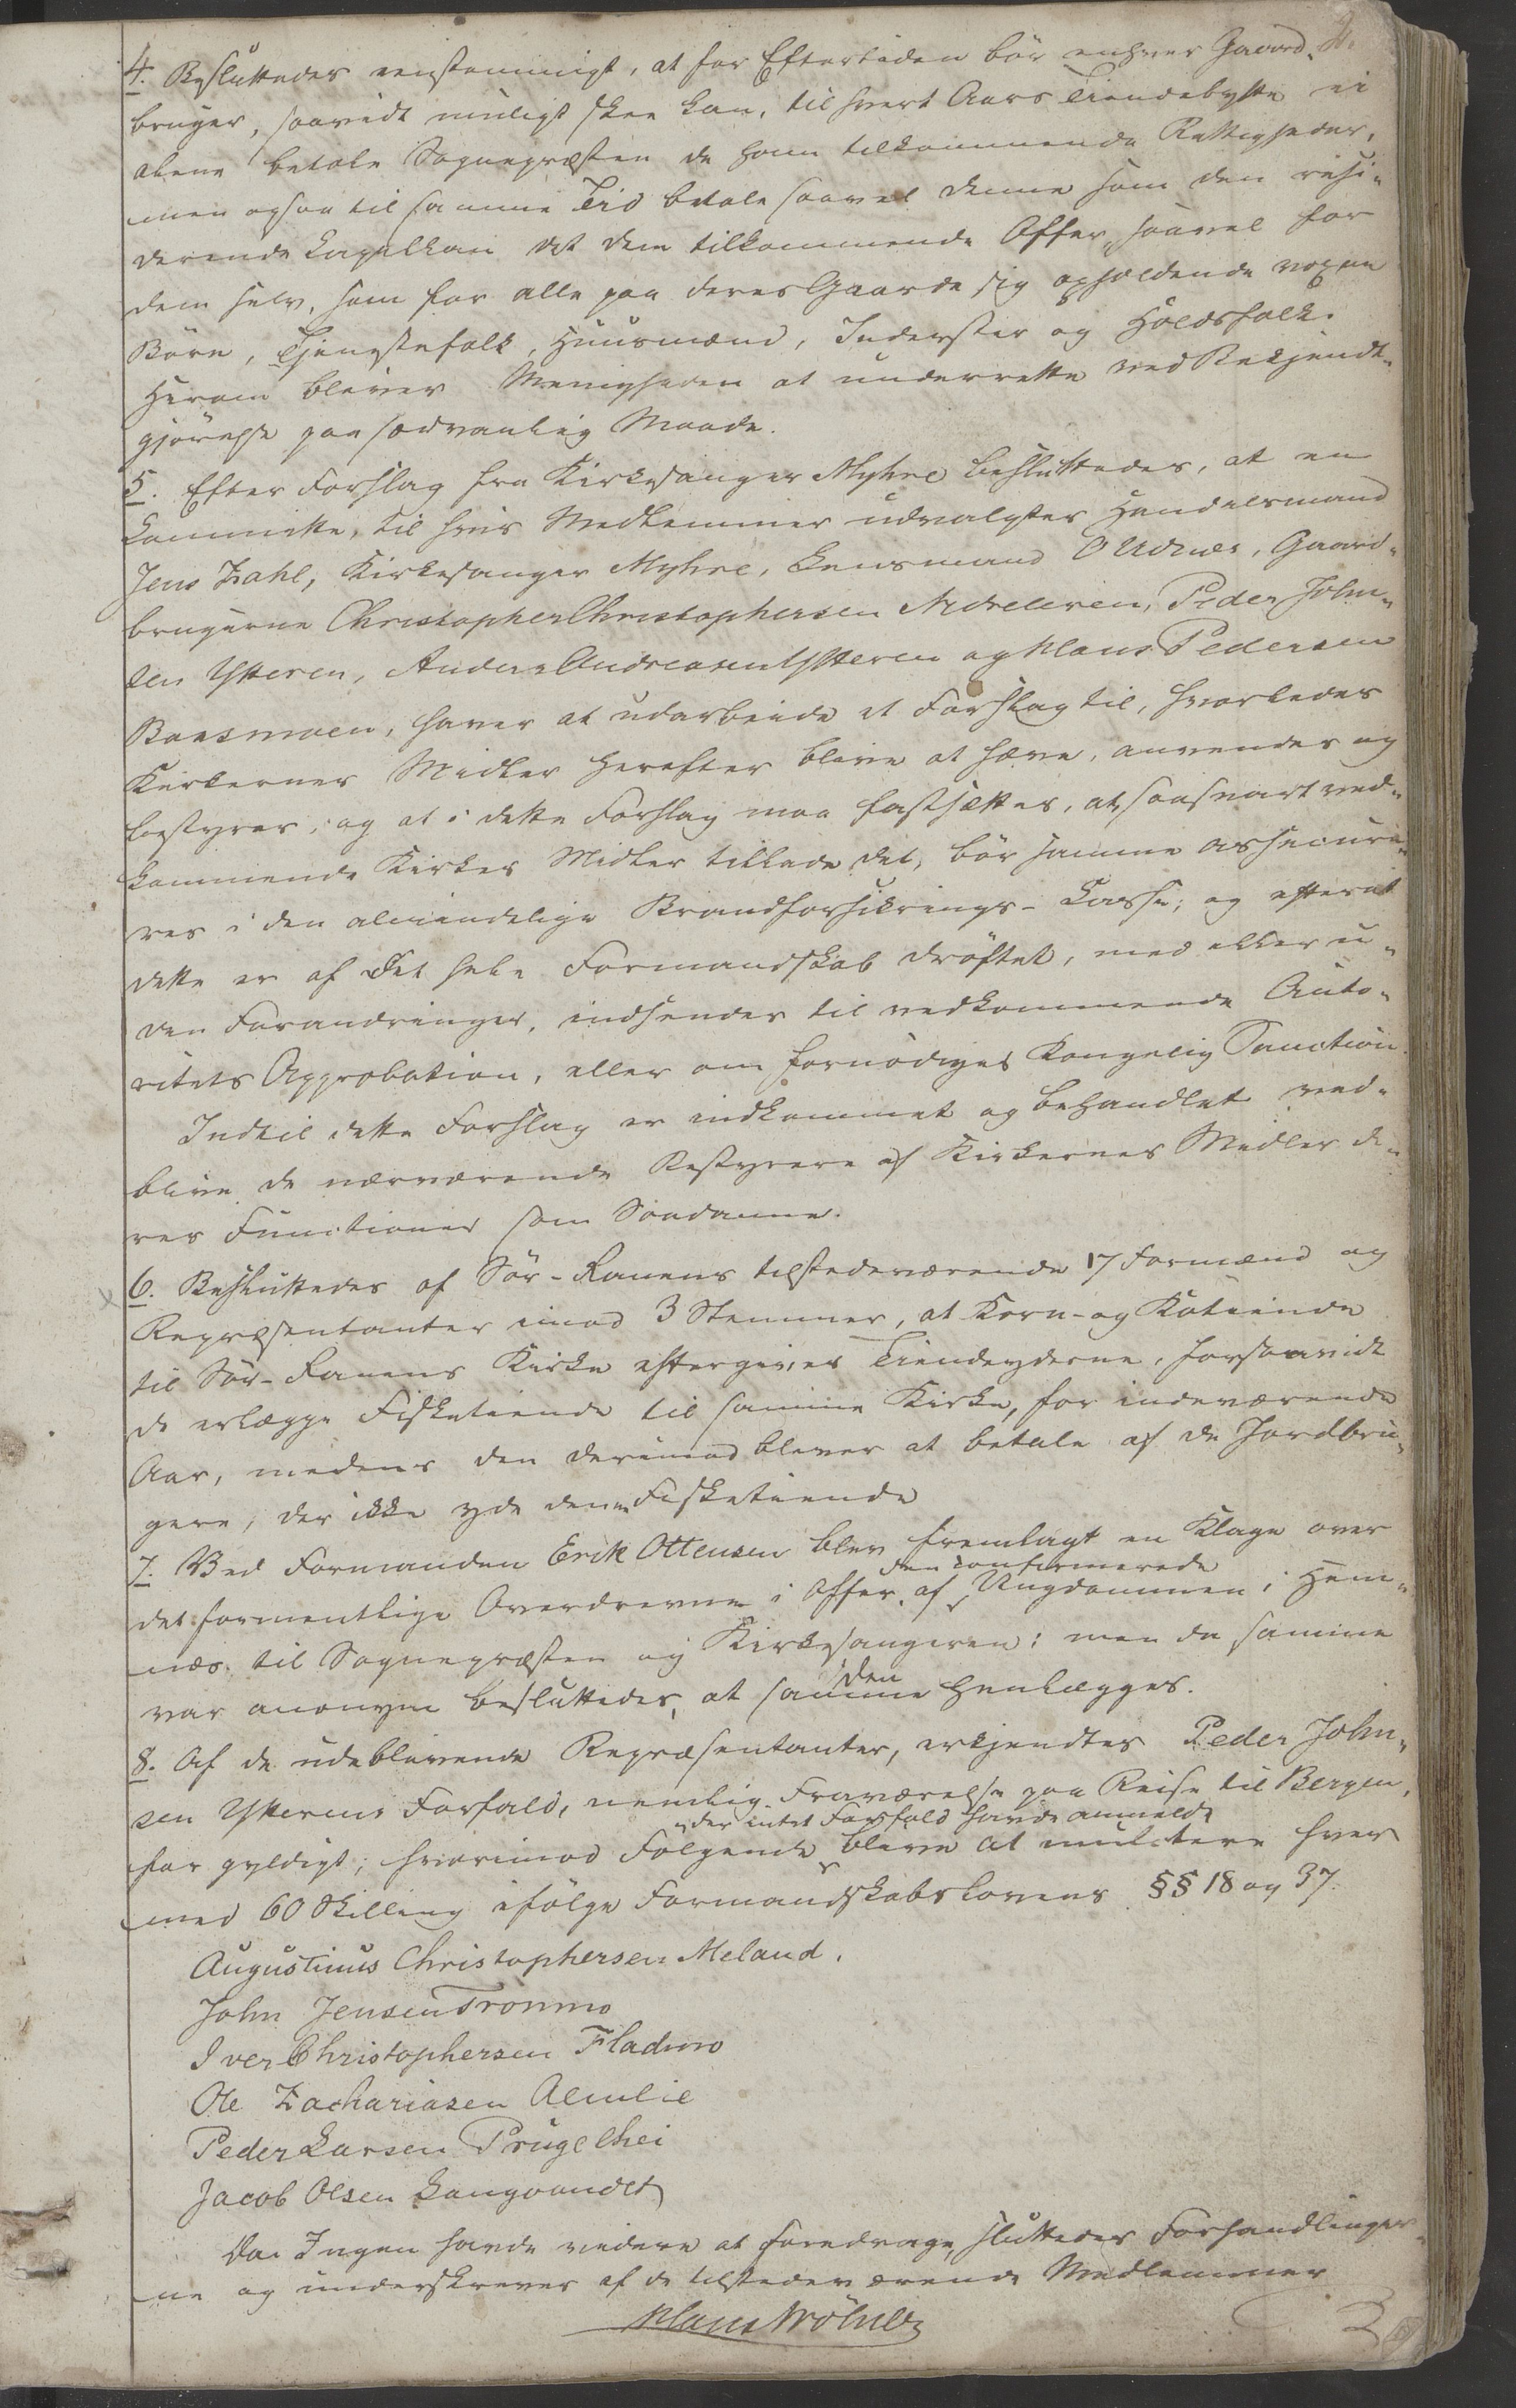 4. Besluttedes eenstemmigt, at for Eftertiden bör enhver Gaard-
bruger, saavidt muligt skee kan, til hvert Aars Tiendebytte ei
alene betale Sognepræsten de ham tilkommende Rettigheder,
men ogsaa til samme Tid betale saavel denne som den resi-
derende Capellan det dem tilkommende Offer, saavel for
dem selv, som for alle paa deres Gaarde sig opholdende voxne
Börn, Tjenestefolk, Huusmænd, Inderster og Holdsfolk.
Herom bliver Menigheden at underrette ved Bekjendt-
gjörelse paa sædvanlig Maade.
5. Efter Forslag fra Kirkesanger Myhre besluttedes, at en
Committe, til hvis Medlemmer udvalgtes Handelsmand
Jens Zahl, Kirkesanger Myhre, Lensmand O Udnes, Gaard-
brugerne Christopher Christophersen Nedreleren, Peder John-
sen Ytteren, Anders Andreasen Ytteren og Klaus Pedersen
Baasmoen, haver at udarbeide et Forslag til, hvorledes
Kirkernes Midler herefter blive at hæve, anvendes og
bestyres, og at i dette Forslag maa fastsættes, at, saasnart ved-
kommende Kirkes Midler tillade det, bör samme assecure-
res i den almindelige Brandforsikrings-Casse; og efterat
dette er af det hele Formandskab dröftet, med eller u-
den Forandringer, indsendes til vedkommende Auto-
ritets Approbation, eller om fornödiges Kongelig Sanction.
Indtil dette Forslag er indkommet og behandlet ved-
blive de nærværende Bestyrere af Kirkernes Midler de-
res Functioner som Saadanne.
6. Besluttedes af Sör-Ranens tilstedeværende 17 Formænd og
Repræsentanter imod 3 Stemmer, at Korn- og Kotiende
til Sör-Ranens Kirke eftergives Tiendeyderne, forsaavidt
de erlægge Fisketiende til samme Kirke, for indeværende
Aar, medens den derimod bliver at betale af de Jordbru-
gere, der ikke yde denne Fisketiende
7. Ved Formanden Erik Ottensen blev fremlagt en Klage over
den confirmerede
det formentlige Overdrevne i Offer af Ungdommen i Hem-
næs til Sognepræsten og Kirkesangeren; men da samme
den
var anonym besluttedes, at samme henlægges.
8. Af de udeblevende Repræsentanter, erkjendtes Peder John-
sen Ytterens Forfald, nemlig Fraværelse paa Reise til Bergen,
der intet Forfald havde anmeldt
for gyldigt; hvorimod Fölgende bleve at mulctere hver
med 60 Skilling ifölge Formandskabslovens §§ 18 og 37.
Augustinus Christophersen Meland.
John Jensen Tronmo
Iver Christophersen Fladmo
Ole Zachariasen Almlie
Peder Larsen Prugelhei
Jacob Olsen Langvandet
Da Ingen havde videre at foredrage, sluttedes Forhandlinger-
ne og underskreves af de tilstedeværende Medlemmer